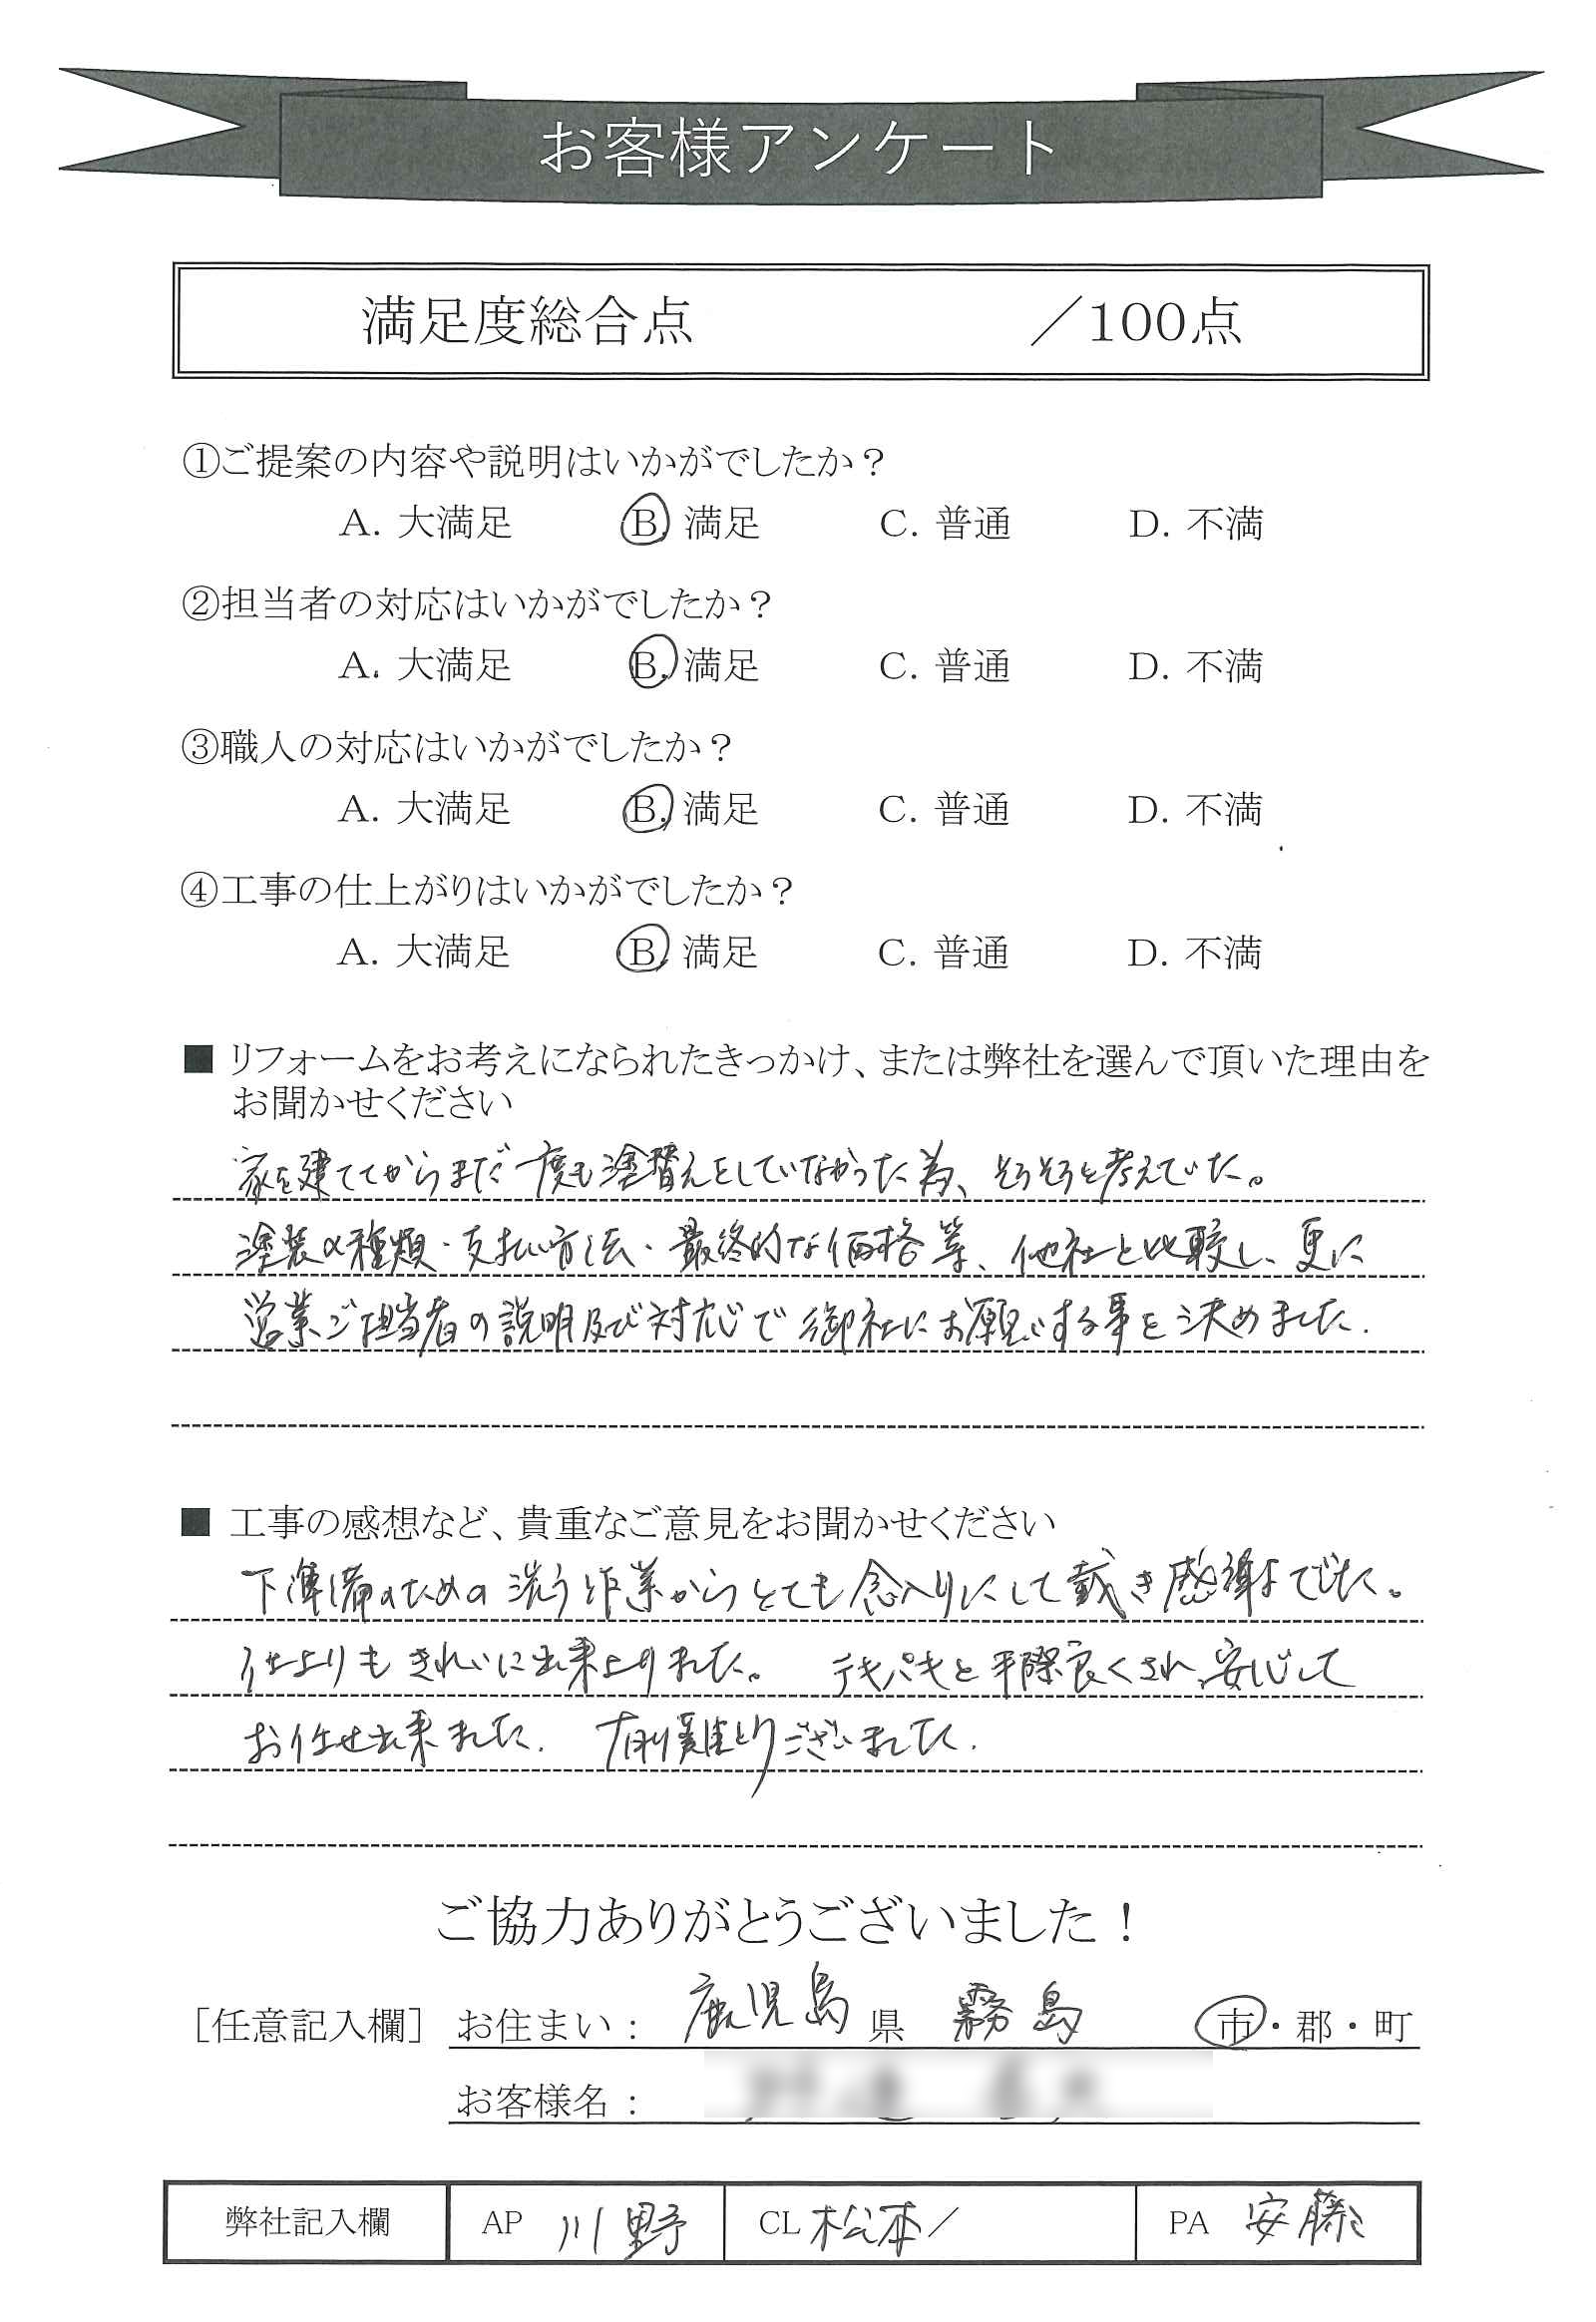 お客様アンケート
満足度総合点　／100点
①ご提案の内容や説明はいかがでしたか？
A. 大満足　B. 満足　C. 普通　D. 不満
②担当者の対応はいかがでしたか？
A. 大満足　B. 満足　C. 普通　D. 不満
③職人の対応はいかがでしたか？
A. 大満足　B. 満足　C. 普通　D. 不満
④工事の仕上がりはいかがでしたか？
A. 大満足　B. 満足　C. 普通　D. 不満
■ リフォームをお考えになられたきっかけ、または弊社を選んで頂いた理由を
お聞かせください
家を建ててからまだ一度も塗替えをしていなかった為、そろそろと考えていた。
塗装の種類・支払い方法・最終的な価格等、他社と比較し、更に
営業ご担当者の説明及び対応で御社にお願いする事を決めました.
■ 工事の感想など、貴重なご意見をお聞かせください
下準備のための洗う作業からとても念入りにして戴き感謝までした。
仕上りもきれいに出来上りました。　テキパキと手際良くされ、安心して
お任せ出来ました.　有り難とうございました.
ご協力ありがとうございました！
［任意記入欄］ お住まい： 鹿児島 県 霧島 市・郡・町
お客様名：
弊社記入欄　AP 川野　CL 松本／　PA 安藤